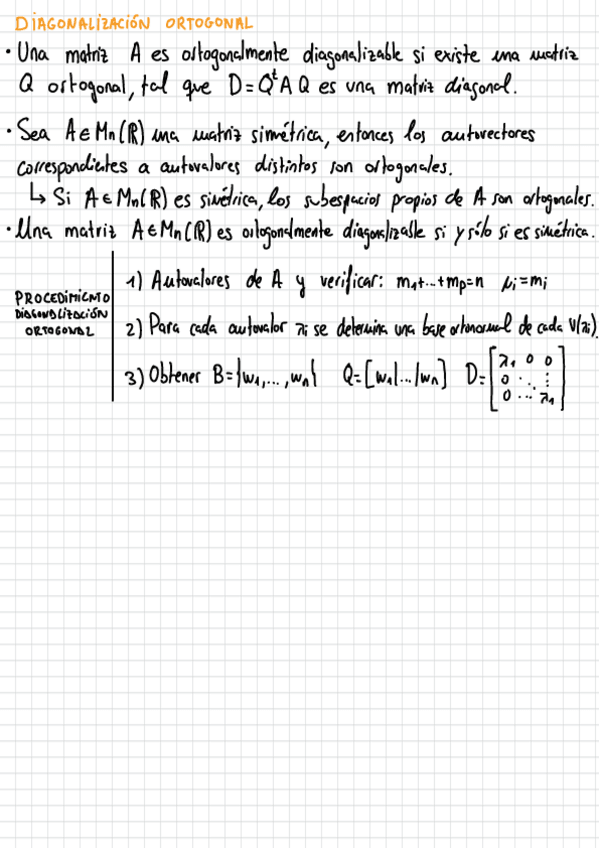 DIAGONALIZACIÓN ORTOGONAL
• Una matriz A es ortogonalmente diagonalizable si existe una matriz
Q ortogonal, tal que D=QᵗAQ es una matriz diagonal.
• Sea A∈Mn(ℝ) una matriz simétrica, entonces los autovectores
correspondientes a autovalores distintos son ortogonales.
↳ Si A∈Mn(ℝ) es simétrica, los subespacios propios de A son ortogonales.
• Una matriz A∈Mn(ℝ) es ortogonalmente diagonalizable si y sólo si es simétrica.
PROCEDIMIENTO
DIAGONALIZACIÓN
ORTOGONAL
1) Autovalores de A y verificar: m₁+...+mp=n μi=mi
2) Para cada autovalor λi se determina una base ortonormal de cada V(λi).
3) Obtener B={w₁,...,wn} Q=[w₁|...|wn] D=[λ₁ 0 0
0 ⋱ ⋮
0 ... λ₁]